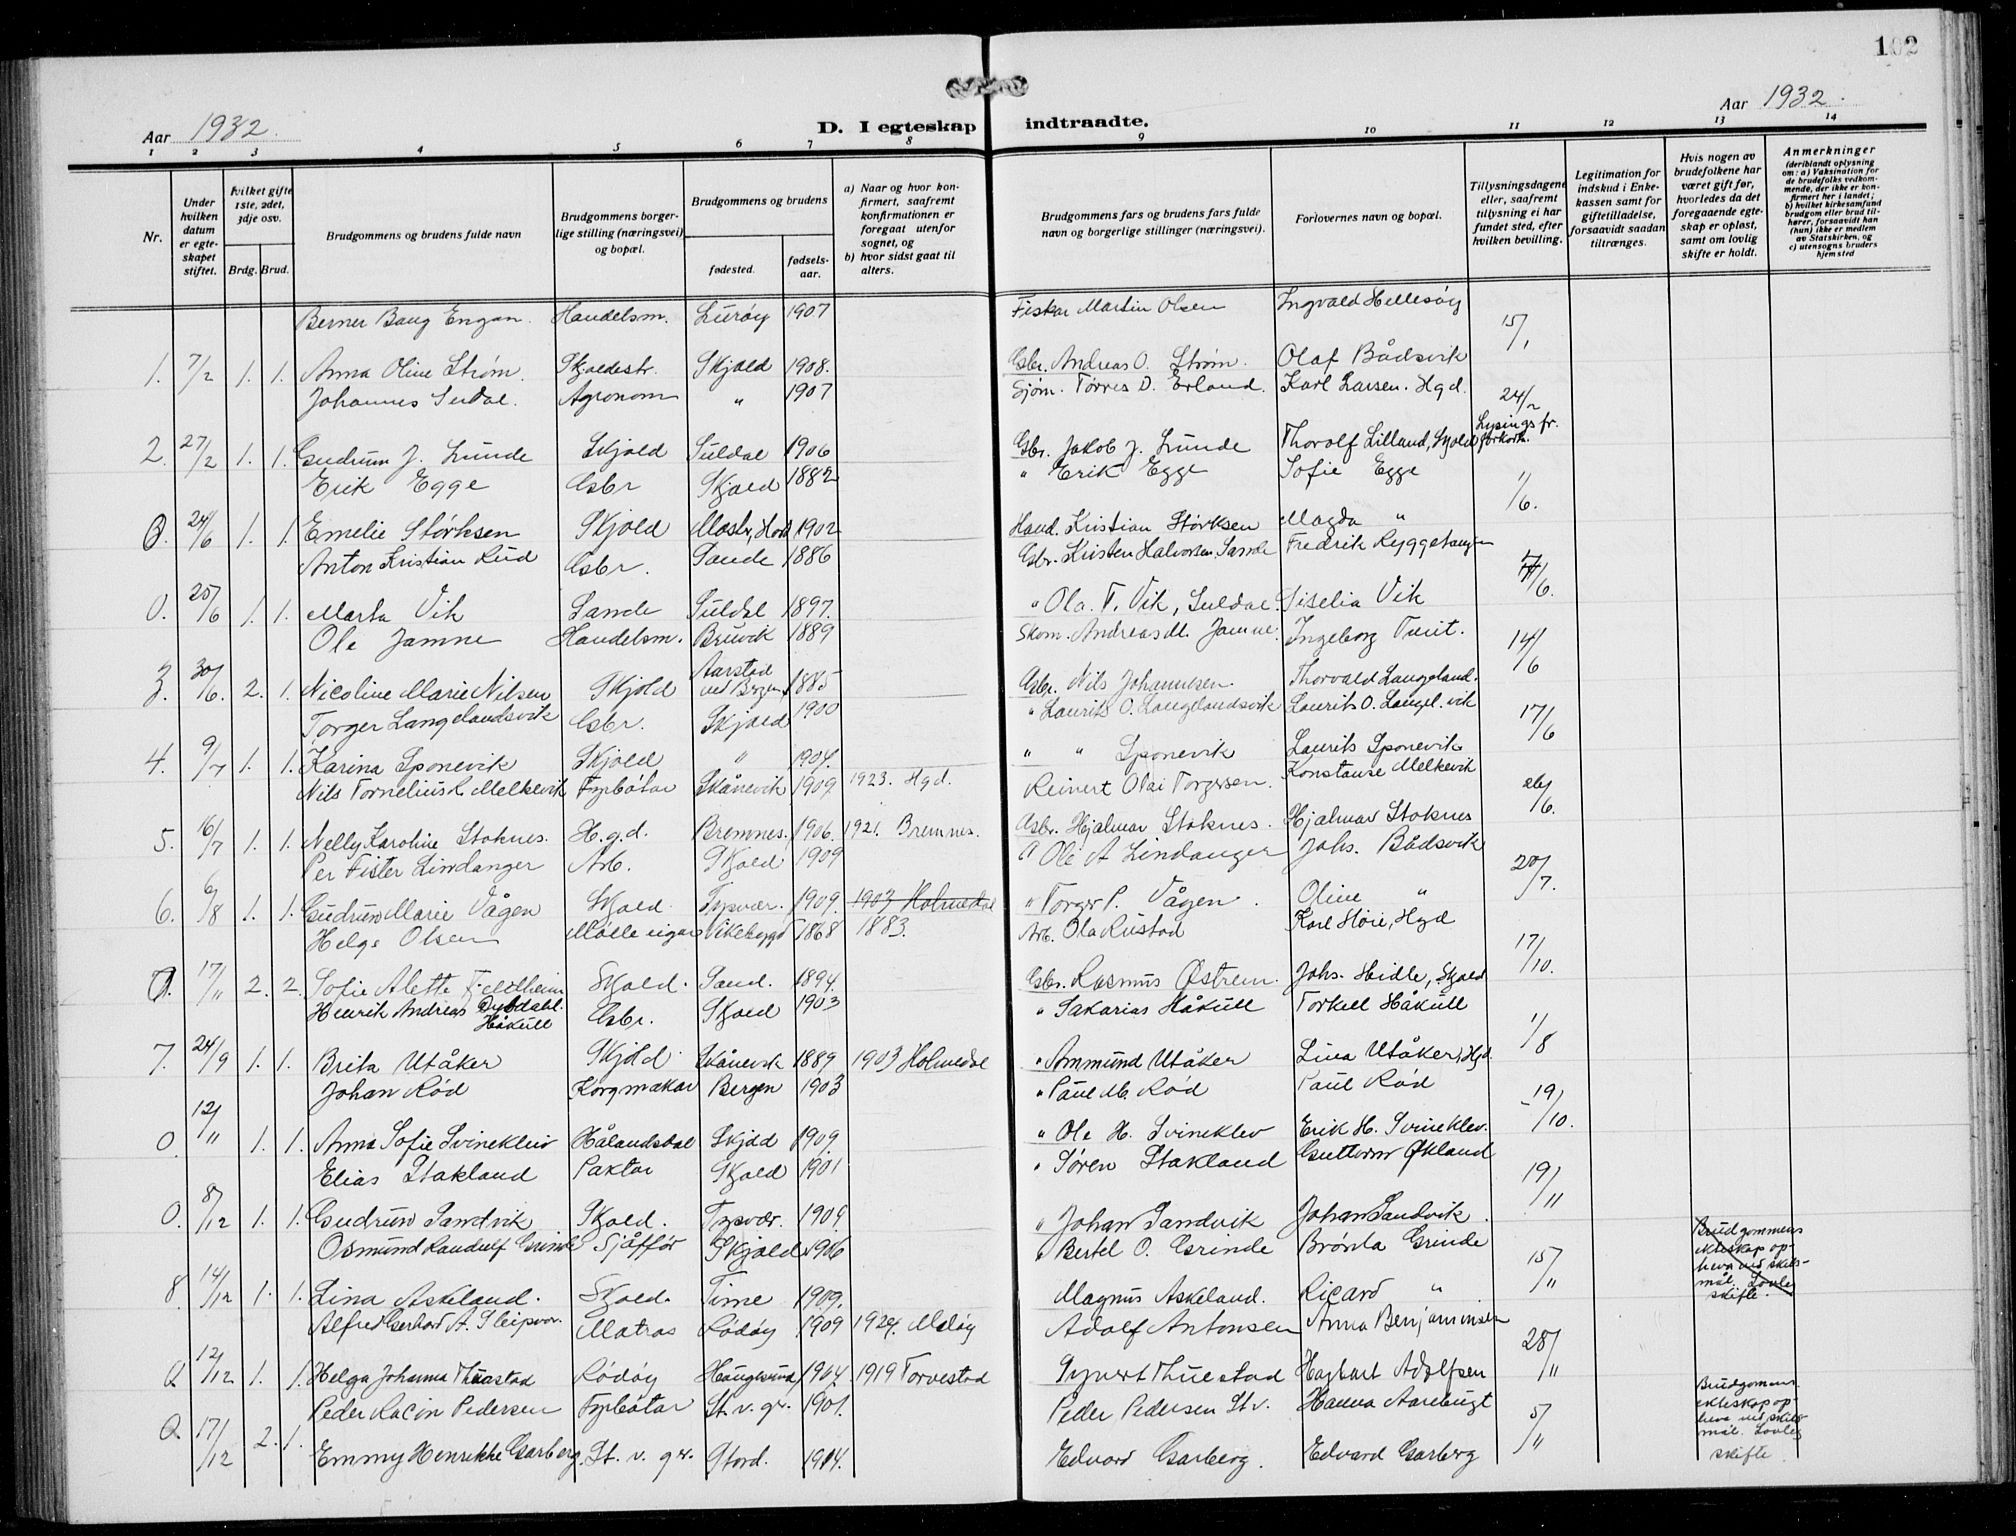 102
Aar 1932.
D. I egteskap indtraadte.
Aar 1932.
1 2 3 4 5 6 7 8 9 10 11 12 13 14
Nr.
Under hvilken datum er egteskapet stiftet.
hvilket gifte 1ste, 2det, 3dje osv.
Brdg. Brud.
Brudgommens og brudens fulde navn
Brudgommens borgerlige stilling (næringsvei) og bopæl.
Brudgommens og brudens
fødested.
fødselsaar.
a) Naar og hvor konfirmert, saafremt konfirmationen er foregaat utenfor sognet, og
b) hvor sidst gaat til alters.
Brudgommens fars og brudens fars fulde navn og borgerlige stillinger (næringsvei).
Forlovernes navn og bopæl.
Tillysningsdagene eller, saafremt tillysning ei har fundet sted, efter hvilken bevilling.
Legitimation for indskud i Enkekassen samt for giftetilladelse, forsaavidt saadan tiltrænges.
Hvis nogen av brudefolkene har været gift før, hvorledes da det foregaaende egteskap er opløst, samt om lovlig skifte er holdt.
Anmerkninger
(deriblandt oplysning om: a) Vaksination for de brudefolks vedkommende, der ikke er konfirmert her i landet; b) hvilket kirkesamfund brudgom eller brud tilhører, forsaavidt han (hun) ikke er medlem av Statskirken, og c) utensogns bruders hjemsted
Berner Baug Engan. Handelsm. Lurøy 1907 Fiskar Martin Olsen Ingvald Hellesøy 15/1
1. 7/2 1. 1. Anna Oline Strøm. Skjoldestr. Skjold 1908. Gbr. Andreas O. Strøm. Olaf Bådsvik
Johannes Surdal. Agronom " 1907 Sjøm. Tørres D. Erland. Karl Larsen. Hgd. 24/2
2. 27/2 1. 1. Gudrun J. Lunde Skjold Suldal 1906 Gbr. Jakob J. Lunde Thorolf Lilland, Skjold Lysings fr. forkort.
Erik Egge Gbr Skjold 1882 " Erik Egge Sofie Egge 1/6.
0. 24/6 1. 1. Emelie Størksen Skjold Mostr, Hord 1902 Hand. Kristian Størksen Magda "
Anton Kristian Rud Gbr. Sande 1886 Gbr. Kristen Halvorsen, Sande Fredrik Ryggehaugen
0. 25/6 1. 1. Marta Vik Sande Suldal 1897. " Ola. T. Vik, Suldal. Siselia Vik /6.
Ole Jamne Handelsm. Bruvik 1889 Skom. Andreas M. Jamne. Ingeborg Tveit. 14/6
3. 30/6. 2. 1. Nicoline Marie Nilsen Skjold Aarstad ved Bergen 1885 Gbr. Nils Johannesen. Thorvald Langeland.
Torger Langelandsvik Gbr. Skjold 1900 " Laurits O. Langelandsvik Laurits O. Langel. vik 17/6
4. 9/7 1. 1. Karina Sponevik Skjold " 1904. " " Sponevik Laurits Sponevik
Nils Tornelius R. Melkevik Fyrbøtar Skånevik 1909. 1923. Hgd. Reinert Olai Torgersen. Konstanse Melkevik 26/6.
5. 16/7 1. 1. Nelly Karoline Stoknes. H.g.d. Bremnes. 1906. 1921. Bremnes. Gbr. Hjalmar Stoknes. Hjalmar Stoknes
Per Fister Lindanger Arb. Skjold 1909 " Ole A Lindanger Johs. Bådsvik 20/7.
6. 6/8 1. 1. Gudrun Marie Vågen Skjold. Tysvær. 1909. 1903 Holmedal " Torger P. Vågen. Oline "
Helge Olsen Mølle eigar Vikebygd 1868 1883. Arb. Ola Rustad Karl Høie, Hgd 17/10.
0. 17/11 2. 2. Sofie Alette Fjeldheim Skjold. Sand. 1894. Gbr. Rasmus Østrem. Johs. Hidle, Skjold
Henrik Andreas Dybdahl. Håkull Gbr. Skjold 1903 " Sakarias Håkull Torkell Håkull 1/8
7. 24/9 1. 1. Brita Utåker Skjold. Skånevik 1889 1903 Holmedal " Ammund Utåker Lina Utåker, Hgd.
Johan Rød Korgmakar Bergen 1903 " Paul M. Rød Paul Rød 19/10.
0. 12/11 1. 1. Anna Sofie Svineklev Hålandsdal Skjold 1909. " Ole H. Svineklev Erik H. Svineklev.
Elias Stakland Paktar Skjold 1901 " Søren Stakland Guttorm Økland 19/11
0. 8/12 1. 1. Gudrun Sandvik Skjold. Tysvær. 1909. " Johan Sandvik Johan Sandvik.
Osmund Randulf Grinde Sjåfför Skjold 1906 " Bertel O. Grinde Brønla Grinde 15/11 Brudgommens ekteskap opheva ved skilsmål. Lovleg skifte.
8. 14/12 1. 1. Lina Askeland. Skjold. Time 1909. Magnus Askeland. Ricard "
Alfred Gerhard A. Sleipvor. Matros Rødøy 1909 1924. Meløy Adolf Antonsen Anna Benjaminsen 28/11
0. 12/12 1. 1. Helga Johanna Thuestad Rødøy Haugesund 1904. 1919 Torvestad Syvert Thuestad Hagbart Adolfsen
Peder Racin Pedersen Fyrbøtar St. v. gr. 1901. Peder Pedersen St. v. Hanna Aarebugt 5/11 Brudgommens ekteskap opheva ved skilsmål. Lovleg skifte
0. 17/12 2. 1. Emmy Henrikke Garberg. St. v. gr. Stord. 1914. Edvard Garberg. Edvard Garberg